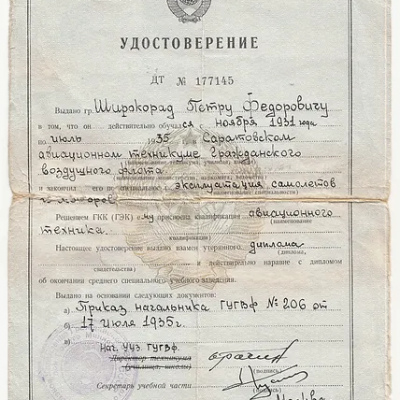 УДОСТОВЕРЕНИЕ
ДТ № 177145
Выдано гр. Широкорад Петру Федоровичу
в том, что он действительно обучался с ноября 1931 года
по июль 1935 г. в Саратовском
авиационном техникуме Гражданского
воздушного флота
и закончил его по специальности эксплуатация самолетов
и моторов
Решением ГКК (ГЭК) ему присвоена квалификация авиационного
техника.
(квалификация)
Настоящее удостоверение выдано взамен утерянного диплома
(диплома,
свидетельства) и действительно наравне с дипломом
об окончании среднего специального учебного заведения.
Выдано на основании следующих документов:
а) Приказ начальника ГУГВФ № 206 от
б) 17 июля 1935г.
в)
Нач. УУЗ ГУГВФ
Директор техникума
(училища, школы)
(подпись)
Секретарь учебной части
Москва